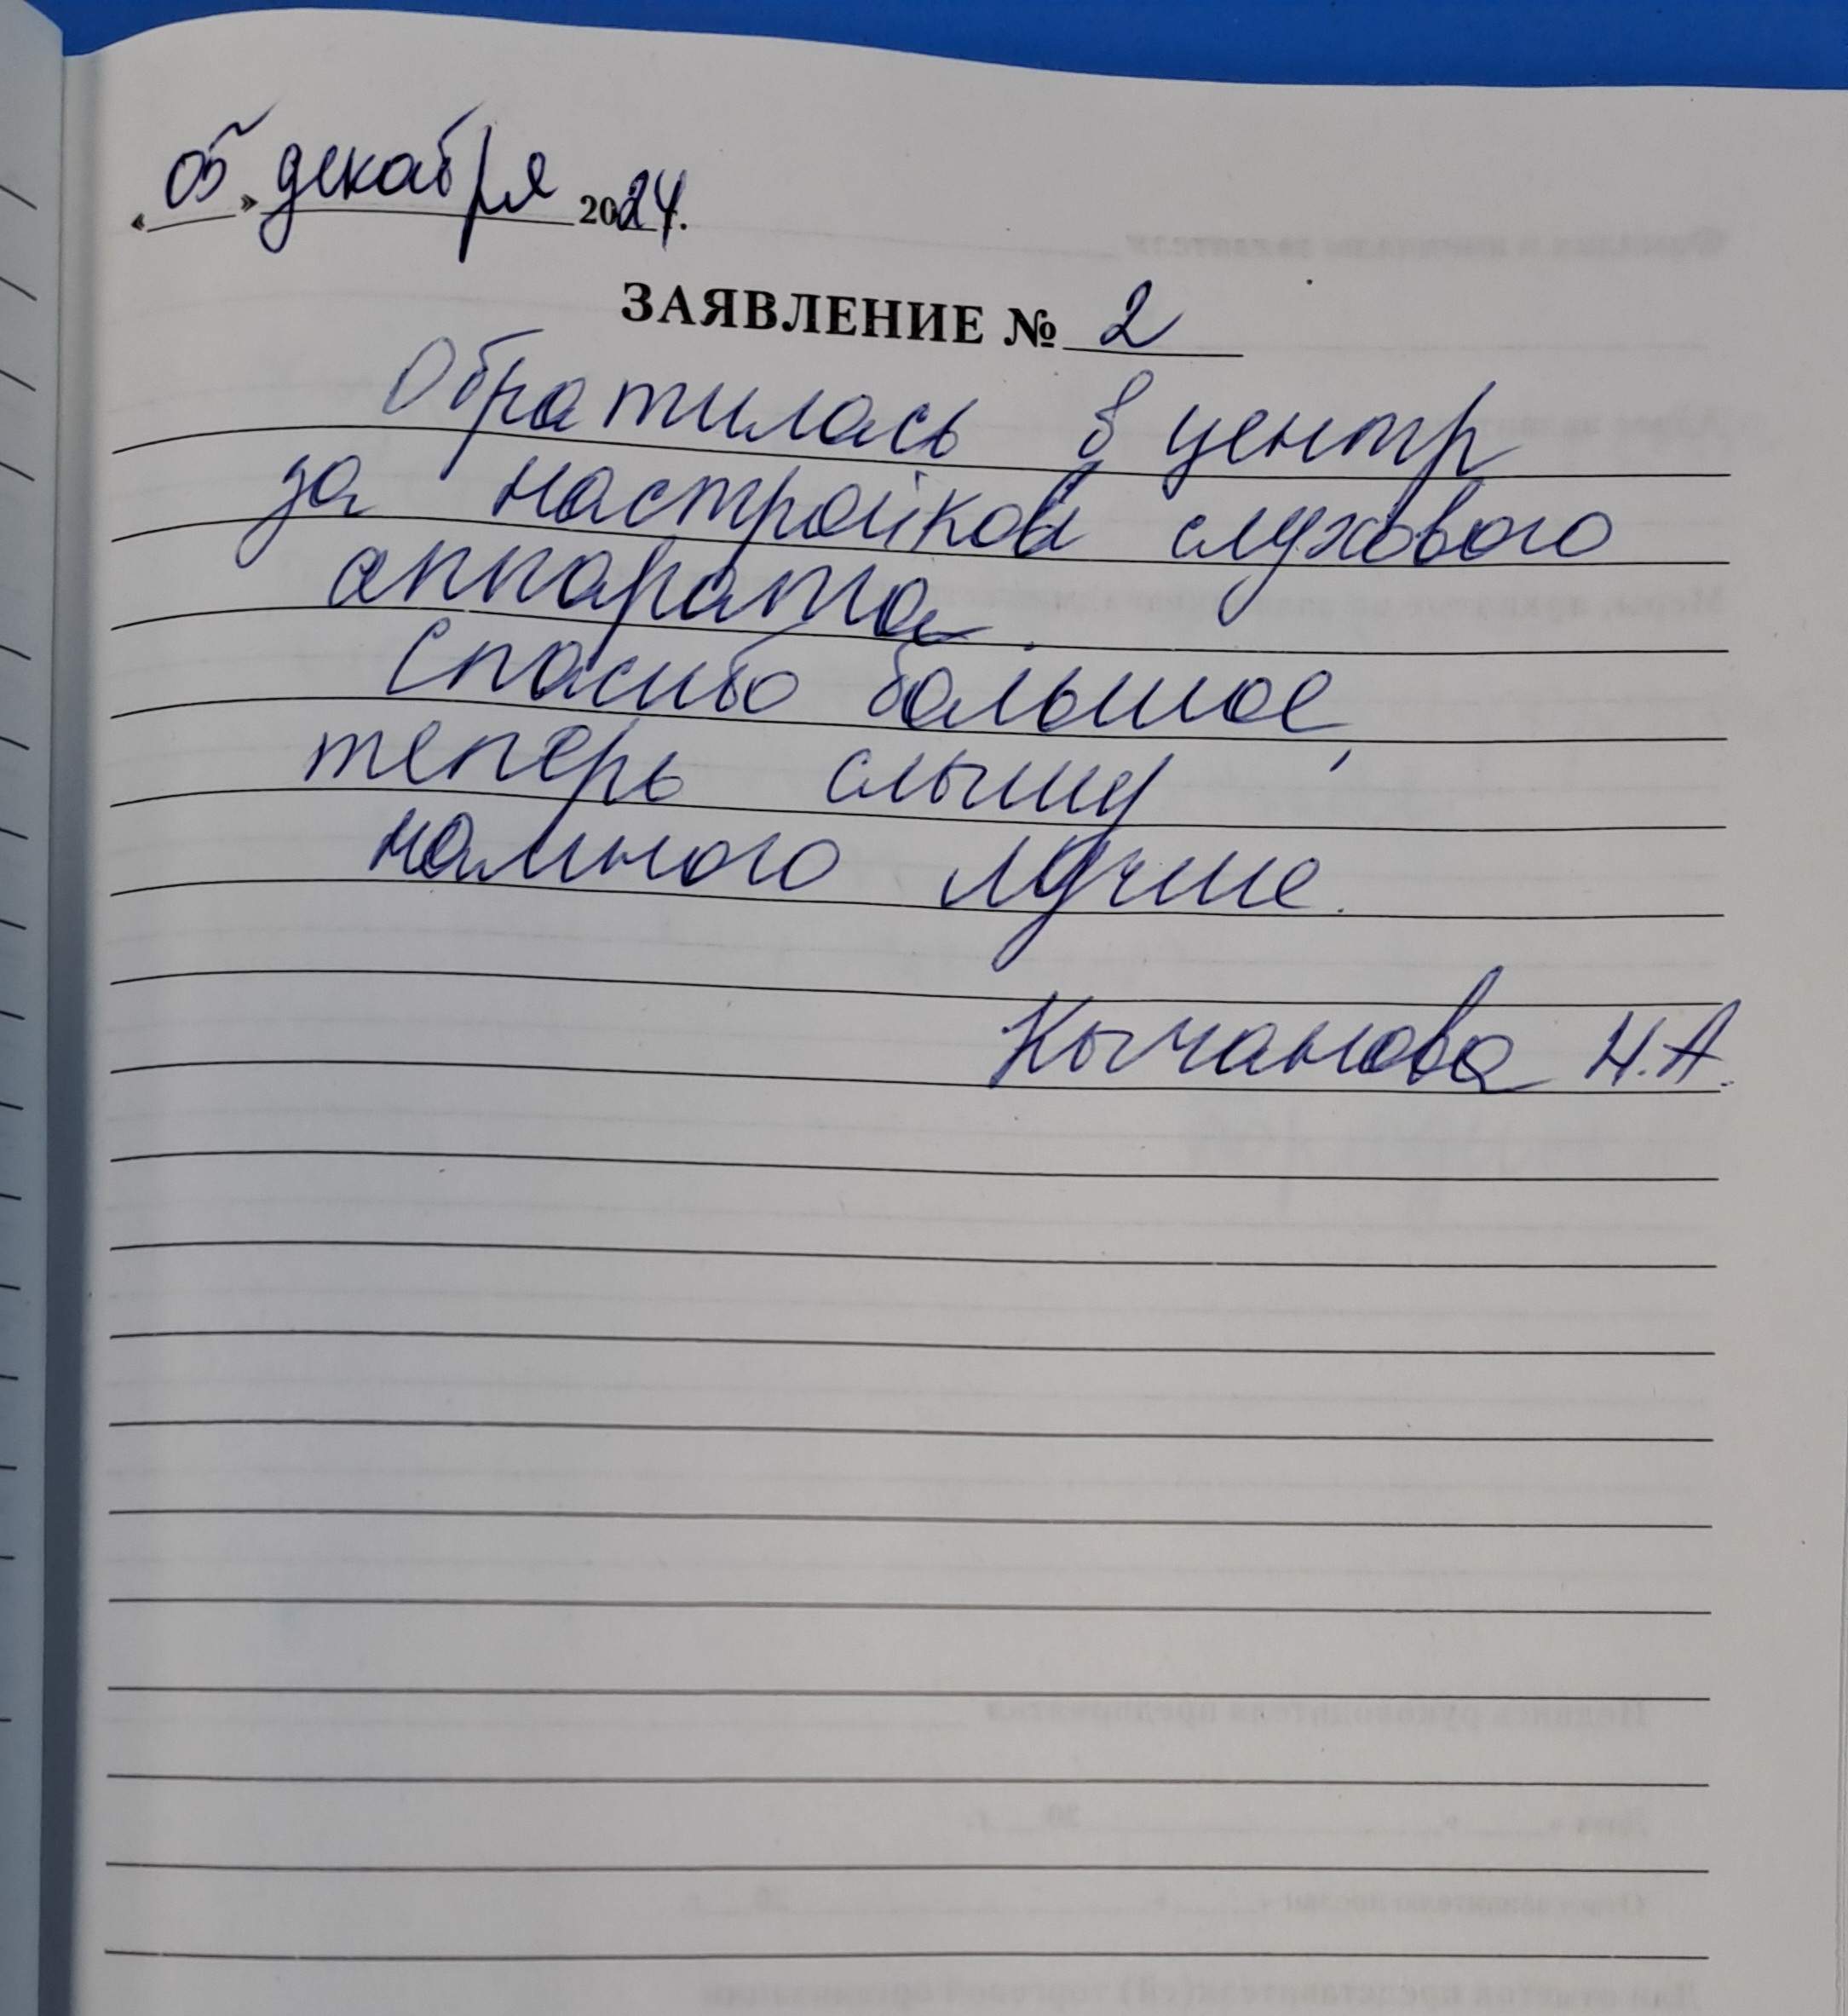 «05» декабря 2024г.
ЗАЯВЛЕНИЕ № 2
Обратилась в центр
за настройкой слухового
аппарата.
Спасибо большое,
теперь слышу
намного лучше.
Кычанова Н.А.